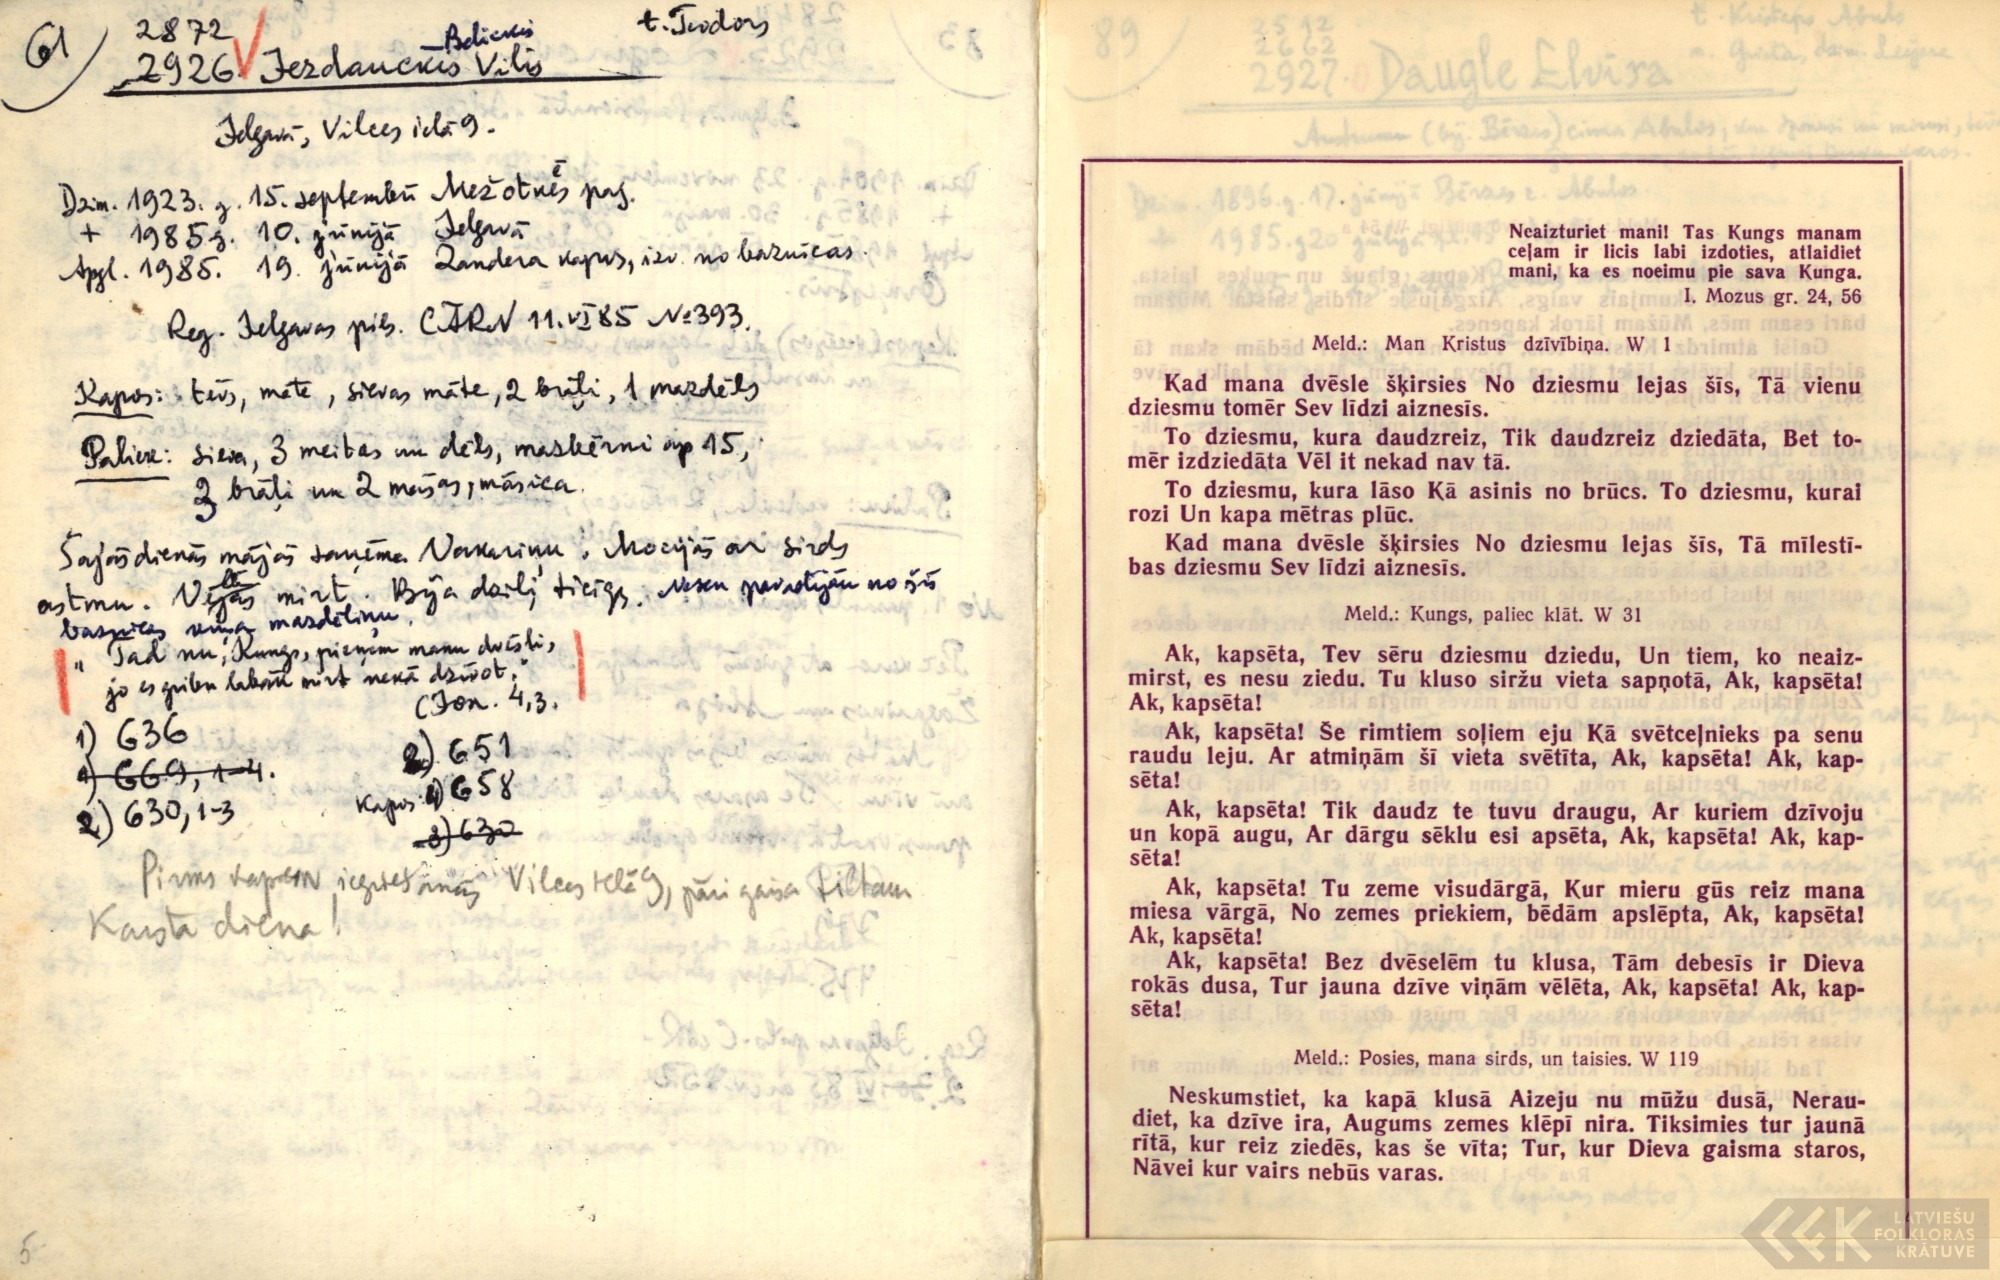 61
2872
2926. Jezdauckis Vilis
- Belickis
t. Teodors
Jelgavā, Vilces ielā 9.
Dzim. 1923. g. 15. septembrī Mežotnes pag.
+ 1985 g. 10. jūnijā Jelgavā
Apgl. 1985. 19. jūnijā Zandera kapos, izv. no baznīcas.
Reg. Jelgavas pils. CARN 11. VI 85 № 393.
Kapos: tēvs, māte, sievas māte, 2 brāļi, 1 mazdēls
Paliek: sieva, 3 meitas un dēls, mazbērni ap 15,
3 brāļi un 2 māsas, māsica.
Šajās dienās mājās saņēma Vakariņu. Mocījās ar sirds
astmu. mirt. Bija dziļi ticīgs. no šīs
baznīcas viņa mazdēliņu.
"Tad nu, Kungs, pieņem manu dvēsli,
jo es gribu labāk mirt nekā dzīvot."
(Jon. 4,3.
1) 636
669, 1-4.
2) 630, 1-3
2) 651
Kapos: 1) 658
3) 630
Pirms kapiem, iegriešanās Vilces ielā 9, pāri gaisa tiltam
Karsta diena!
5
89
2592
2662
2927. Daugle Elvira
t. Kristaps Abuls
Neaizturiet mani! Tas Kungs manam
ceļam ir licis labi izdoties, atlaidiet
mani, ka es noeimu pie sava Kunga.
I. Mozus gr. 24, 56
Meld.: Man Kristus dzīvībiņa. W 1
Kad mana dvēsle šķirsies No dziesmu lejas šīs, Tā vienu
dziesmu tomēr Sev līdzi aiznesīs.
To dziesmu, kura daudzreiz, Tik daudzreiz dziedāta, Bet to-
mēr izdziedāta Vēl it nekad nav tā.
To dziesmu, kura lāso Kā asinis no brūcs. To dziesmu, kurai
rozi Un kapa mētras plūc.
Kad mana dvēsle šķirsies No dziesmu lejas šīs, Tā mīlestī-
bas dziesmu Sev līdzi aiznesīs.
Meld.: Kungs, paliec klāt. W 31
Ak, kapsēta, Tev sēru dziesmu dziedu, Un tiem, ko neaiz-
mirst, es nesu ziedu. Tu kluso siržu vieta sapņotā, Ak, kapsēta!
Ak, kapsēta!
Ak, kapsēta! Še rimtiem soļiem eju Kā svētceļnieks pa senu
raudu leju. Ar atmiņām šī vieta svētīta, Ak, kapsēta! Ak, kap-
sēta!
Ak, kapsēta! Tik daudz te tuvu draugu, Ar kuriem dzīvoju
un kopā augu, Ar dārgu sēklu esi apsēta, Ak, kapsēta! Ak, kap-
sēta!
Ak, kapsēta! Tu zeme visudārgā, Kur mieru gūs reiz mana
miesa vārgā, No zemes priekiem, bēdām apslēpta, Ak, kapsēta!
Ak, kapsēta!
Ak, kapsēta! Bez dvēselēm tu klusa, Tām debesīs ir Dieva
rokās dusa, Tur jauna dzīve viņām vēlēta, Ak, kapsēta! Ak, kap-
sēta!
Meld.: Posies, mana sirds, un taisies. W 119
Neskumstiet, ka kapā klusā Aizeju nu mūžu dusā, Nerau-
diet, ka dzīve ira, Augums zemes klēpī nira. Tiksimies tur jaunā
rītā, kur reiz ziedēs, kas še vīta; Tur, kur Dieva gaisma staros,
Nāvei kur vairs nebūs varas.
LATVIEŠU
FOLKLORAS
KRĀTUVE